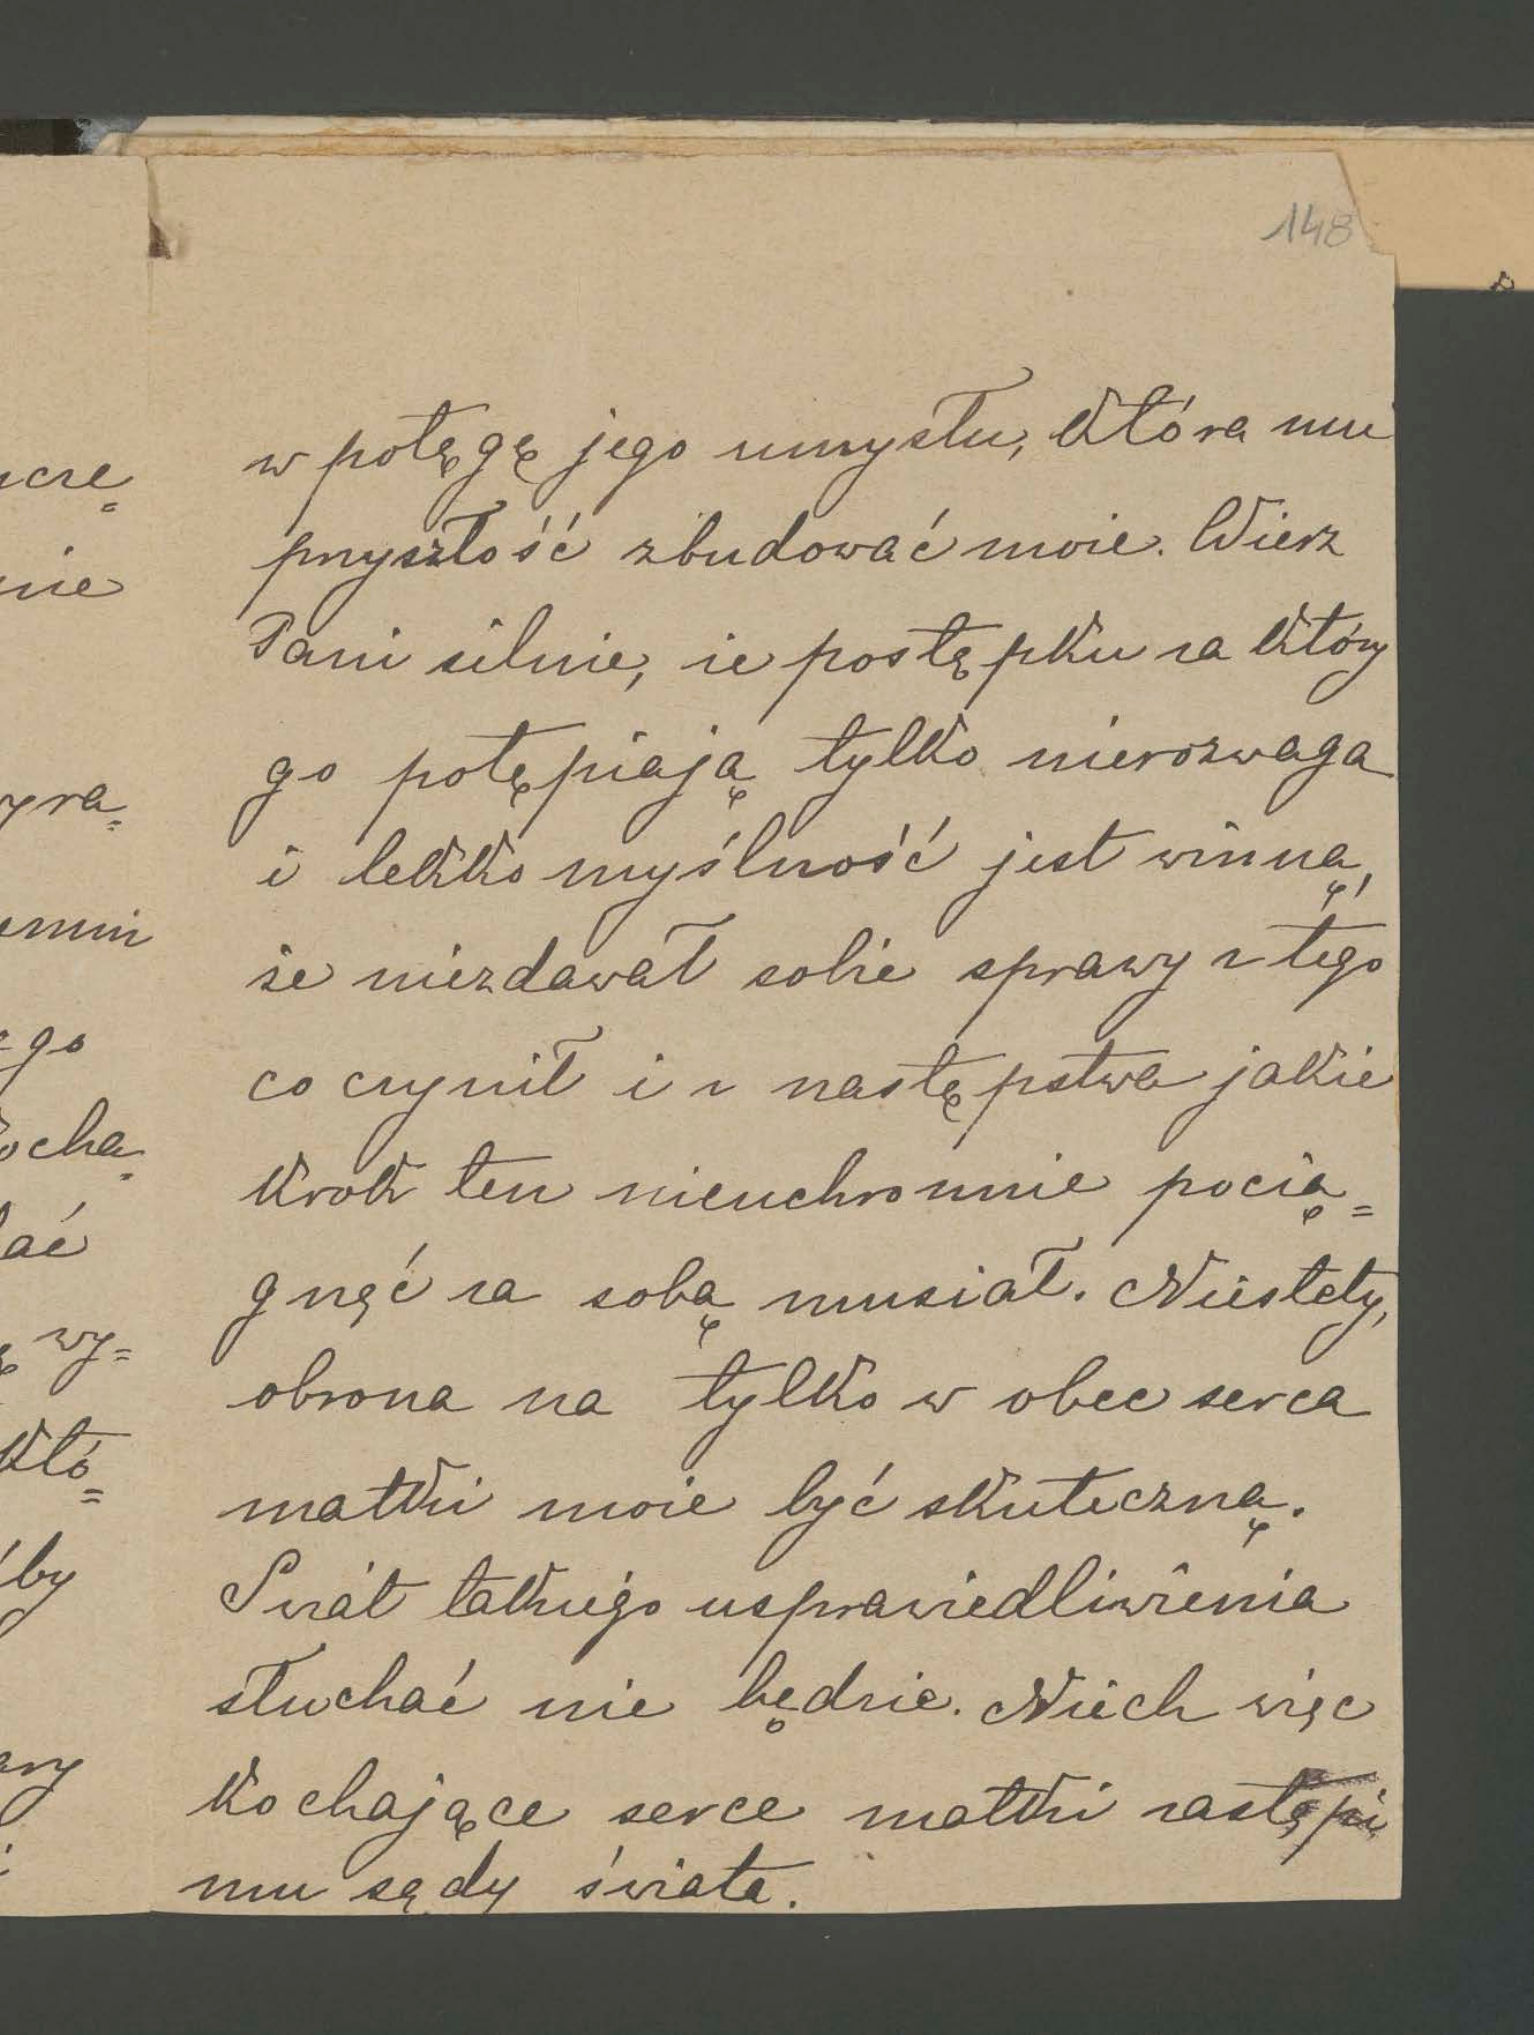 148
w potęgę jego umysłu, która mu
przyszłość zbudować może. Wierz
Pani silnie, że postępku za który
go potępiają tylko nierozwaga
i lekkomyślność jest winną,
że niezdawał sobie sprawy z tego
co czynił i z następstwa jakie
krok ten nieuchronnie pocią=
gnąć za sobą musiał. Niestety,
obrona ta tylko w obec serca
matki może być skuteczną.
Świat takiego usprawiedliwienia
słuchać nie będzie. Niech więc
kochające serce matki zastąpi
mu sądy świata.
czę=
nie
yra=
ego
ocha=
ać
wy=
któ=
by